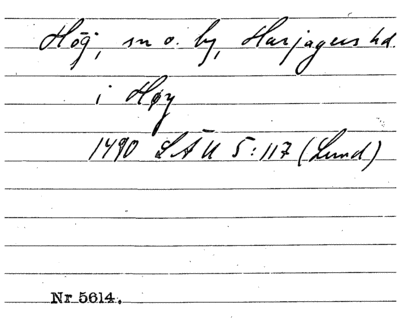 Hög, sn o. by, Harjagers hd.
i Høy
1490 LÄU 5:117 (Lund)
Nr 5614.